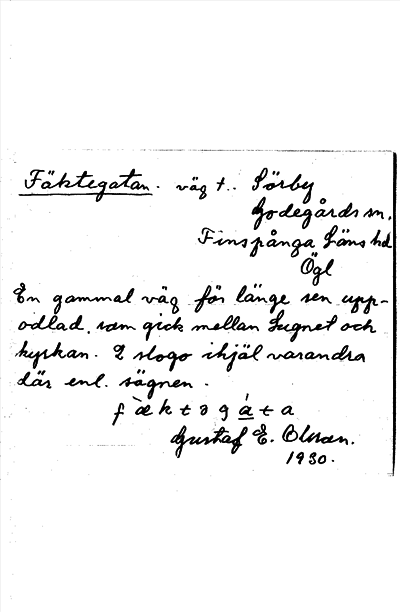 Fäktegatan. väg t.. Sörby
Godegårds sn,
Finspånga Läns hd
Ögl
En gammal väg för länge sen upp-
odlad, som gick mellan Lugnet och
kyrkan. 2 slogo ihjäl varandra
där enl. sägnen.
f æ̀ k t ə g á t a
Gustaf E. Olsson.
1930.